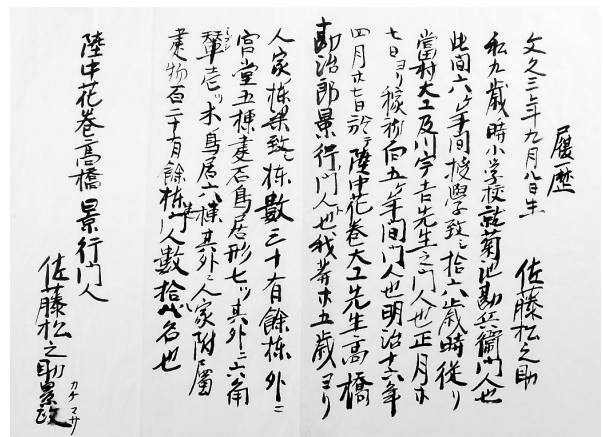 履歴
文久三年九月八日生　佐藤松之助
私九歳ノ時小学校就菊池勘兵衛門人也
此間六ヶ年間授学致シ拾六歳時従リ
當村大工及川宇吉先生之門人也正月廿
七日ヨリ稼初向五ヶ年間門人也明治十六年
四月廿七日於テ陸中花巻大工先生高橋
勘治郎景行門人也我等廿五歳ヨリ
人家棟梁致シ棟數三十有餘棟外ニ
宮堂五棟妻石鳥居形七ツ其外ニ六角
輦壱ツ木鳥居六棟其外ニ人家附屬
建物百二十有餘棟門人數拾八名也
陸中花巻高橋景行門人
佐藤松之助景政
カゲマサ